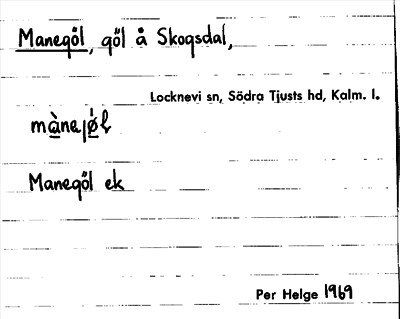 Manegöl, göl å Skogsdal,
Locknevi sn, Södra Tjusts hd, Kalm. l.
mànejǿl
Manegöl ek
Per Helge 1969